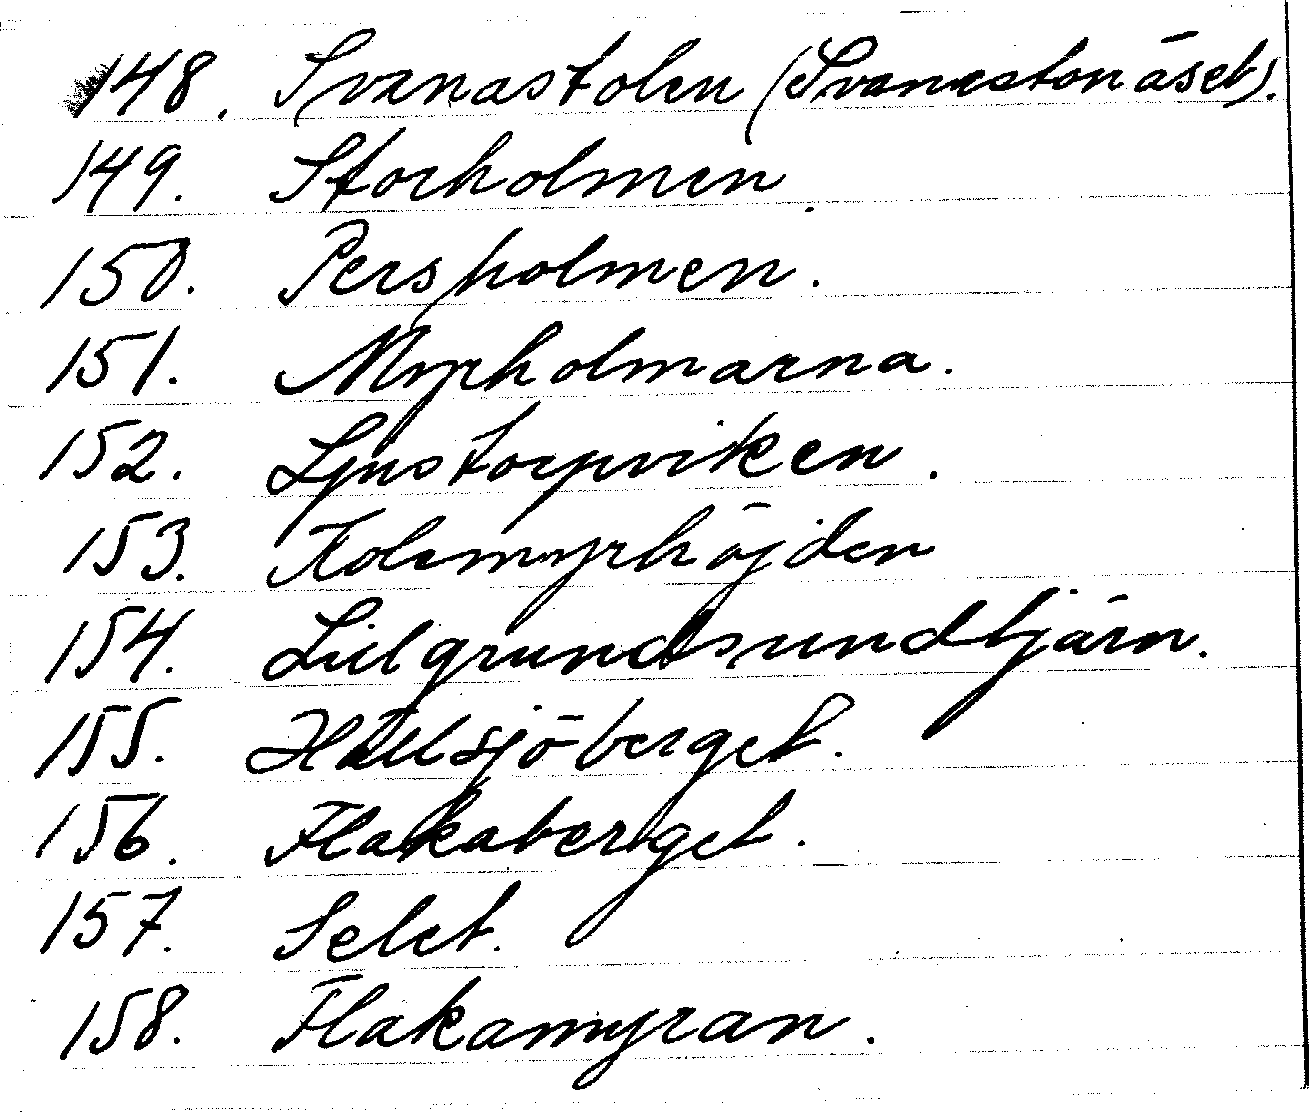 148. Svanastolen (Svanastonäset).
149. Storholmen.
150. Persholmen.
151. Myrholmarna.
152. Ljustorpviken.
153. Kolamyrhöjden
154. Lillgrundsundtjärn.
155. Hällsjöberget.
156. Flakaberget.
157. Selet.
158. Flakamyran.